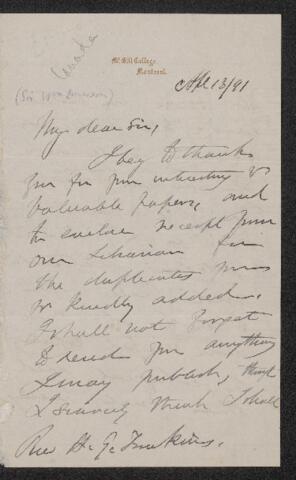 Canada
McGill College,
Montreal.
Apl 13/91
(Sir Wm Dawson)
My dear Sir,
I beg to thank
you for your interesting &
valuable papers, and
to enclose receipt from
our Librarian for
the duplicates you
so kindly added.
I shall not forget
to send you anything
I may publish, though
I scarcely think I shall
Rev H. G.